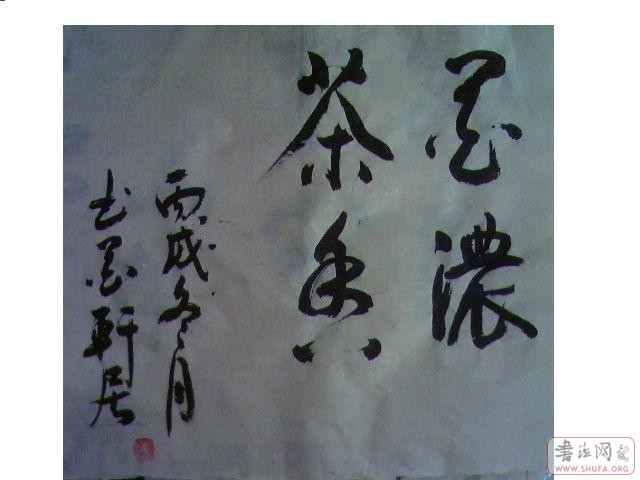 墨濃
茶香
丙戌冬月
於墨軒居
書法网
WWW.SHUFA.ORG